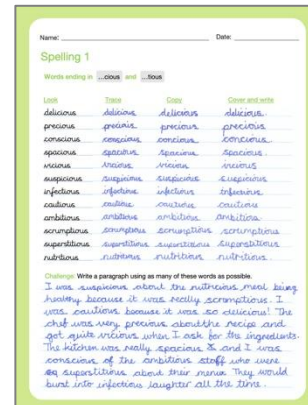 Name: Date:
Spelling 1
Words ending in ...cious and ...tious
Look Trace Copy Cover and write
delicious delicious delicious delicious.
precious precious precious precious
conscious conscious concious concious.
spacious spacious spacious spacious.
vicious vicious vicious vicious.
suspicious suspicious suspicious suspicious
infectious infectious infectious infectious.
cautious cautious cautious cautious
ambitious ambitious ambitious ambitious
scrumptious scrumptious scrumptious scrumptious
superstitious superstitious superstitious superstitious
nutritious nutritious nutritious nutritious.
Challenge: Write a paragraph using as many of these words as possible.
I was suspicious about the nutricious meal being
healthy because it was really scrumptious. I
was cautious because it was so delicious! The
chef was very precious about the recipe and
got quite vicious when I ask for the ingredients.
The kitchen was really spacious & and I was
conscious of the ambitious staff who were
superstitious about their menu. They would
burst into infectious laughter all the time.